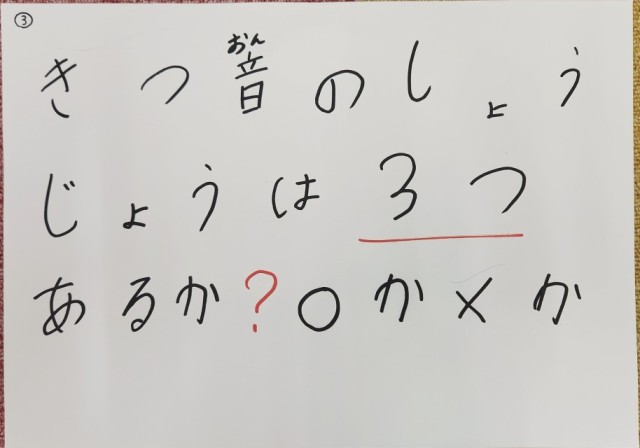 ③
きつ音のしょう
おん
じょうは3つ
あるか?○か×か